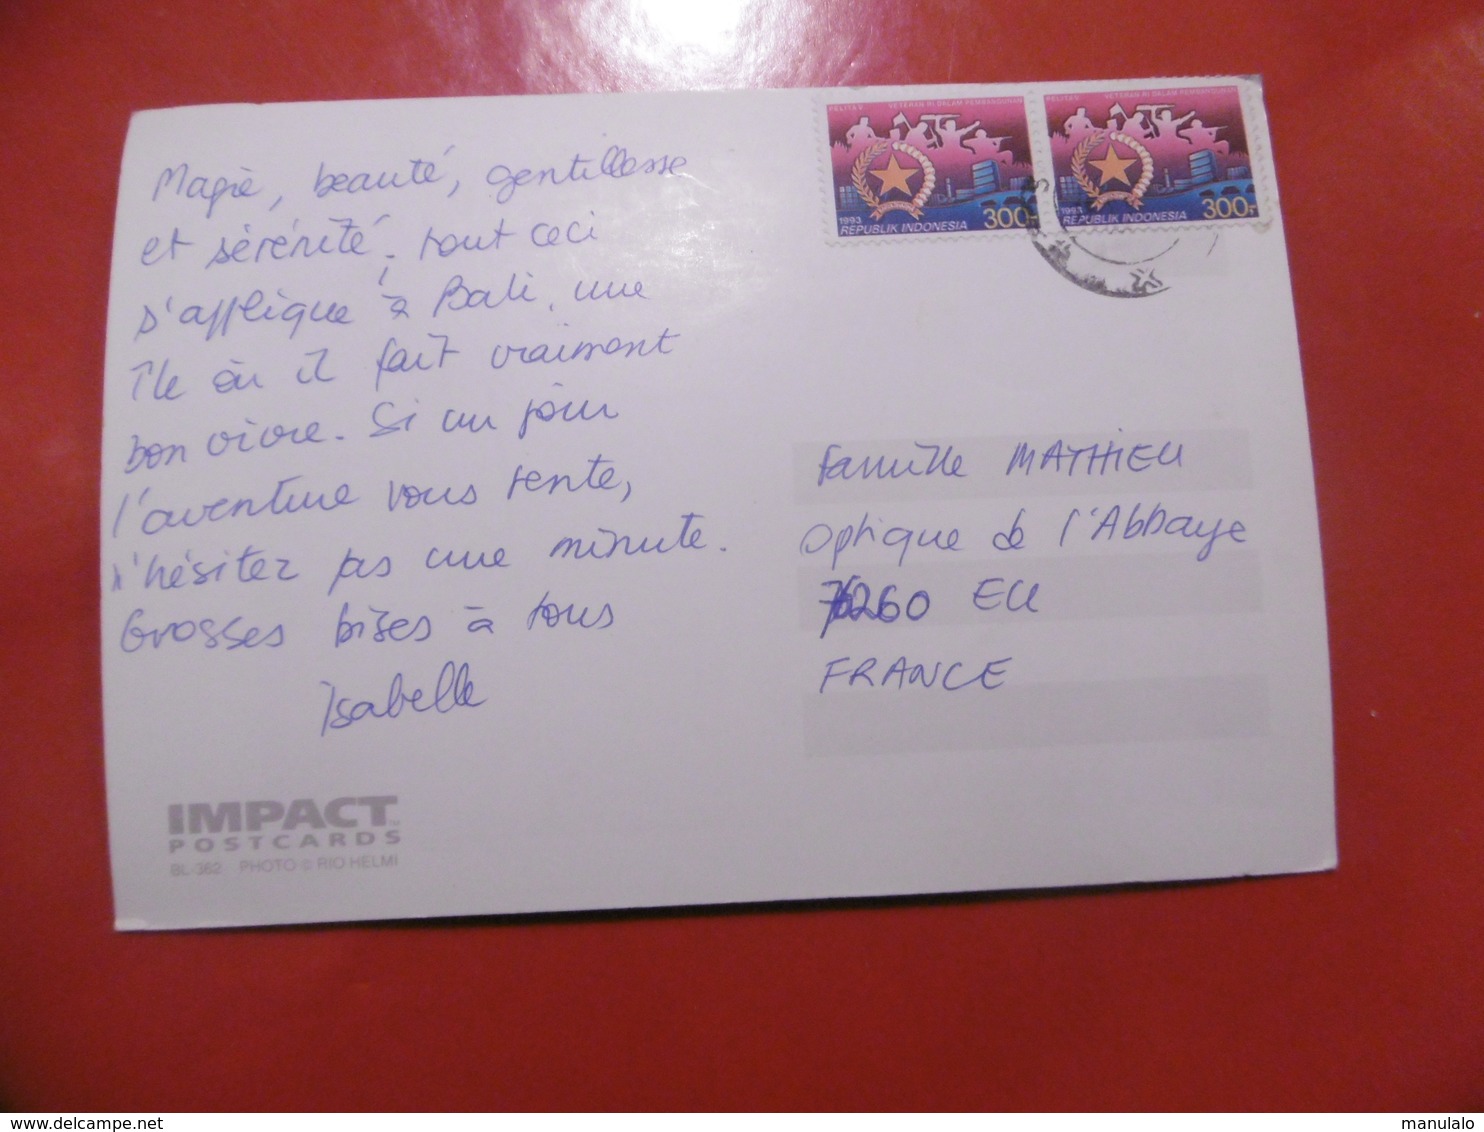 Magie, beauté, gentillesse
et sérénité, tout ceci
s'applique à Bali, une
île où il fait vraiment
bon vivre. Si un jour
l'aventure vous tente,
n'hésitez pas une minute.
Grosses bises à tous
Isabelle
IMPACT
POSTCARDS
BL-362 PHOTO © RIO HELMI
PELITA V VETERAN RI DALAM PEMBANGUNAN
1993 300,-
REPUBLIK INDONESIA
PELITA V VETERAN RI DALAM PEMBANGUNAN
1993 300,-
REPUBLIK INDONESIA
Famille MATHIEU
Optique de l'Abbaye
76260 EU
FRANCE
www.delcampe.net
manulalo